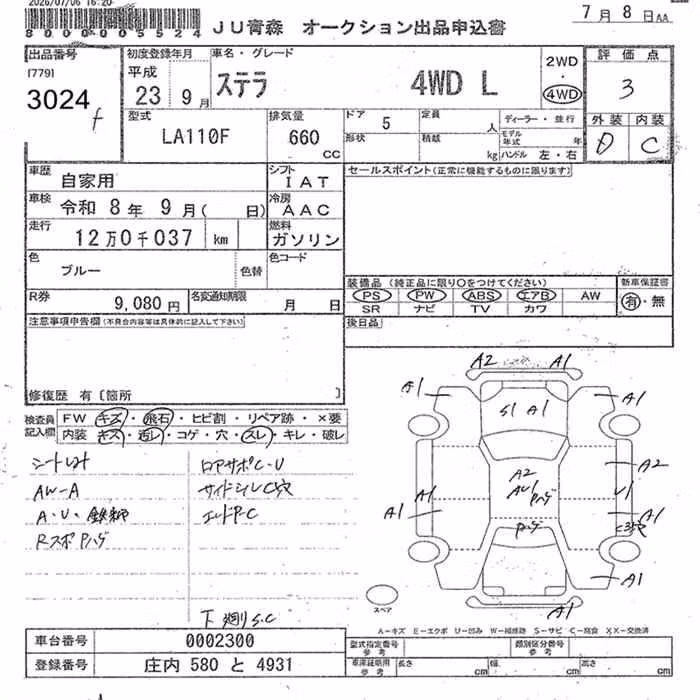 2026/07/06 16:20
8000005524
JU青森 オークション出品申込書
7月8日AA
出品番号
[779]
3024
f
初度登録年月
平成
23 9月
車名・グレード
ステラ 4WD L
2WD
・
4WD
評価点
3
型式
LA110F
排気量
660
cc
ドア 5
定員 人
形状
積載 kg
ディーラー・並行
モデル年式 年
ハンドル 左・右
外装 内装
D C
車歴
自家用
シフト
IAT
セールスポイント(正常に機能するものに限ります)
車検
令和 8年 9月( 日)
冷房
AAC
走行
12万0千037 km
燃料
ガソリン
色
ブルー
色替
色コード
装備品 (純正品に限り○をつけてください)
PS PW ABS エアB AW
SR ナビ TV カワ
新車保証書
有・無
R券
9,080円
名変通知期限
月 日
後日品
注意事項申告欄(不具合内容等は具体的に記入して下さい)
修復歴 有〔箇所 〕
検査員記入欄
FW キズ・飛石・ヒビ割・リペア跡・×要
内装 キズ・汚レ・コゲ・穴・スレ・キレ・破レ
AW-A
A・U・鉄錆
Rスポ Pハゲ
ロアサポC・U
サイドシルC穴
エンドP-C
下廻りS.C
A2 A1
A1 A1
S1 A1
A2
AU1
Pハゲ
Pハゲ
A1
A1
A2
U1
A1
C3穴
A1
A1
スペア
A-キズ E-エクボ U-凹み W-補修跡 S-サビ C-腐食 XX-交換済
車台番号 0002300
登録番号 庄内 580 と 4931
型式指定番号
参考
類別区分番号
参考
車庫証明用
参考
長さ cm
幅 cm
高さ cm